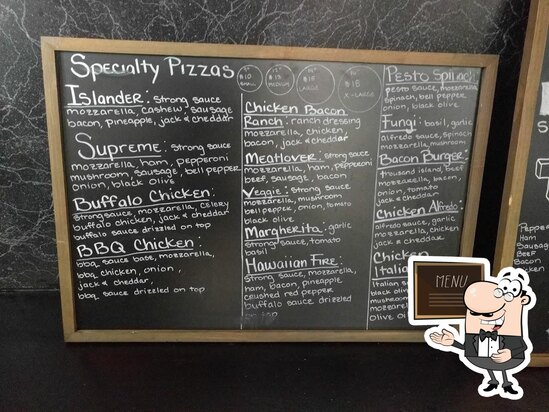 Specialty Pizzas
$10 SMALL
$13 MEDIUM
$15 LARGE
$18 X-LARGE
Islander: strong sauce
mozzarella, cashew, sausage
bacon, pineapple, jack & cheddar
Supreme: strong sauce
mozzarella, ham, pepperoni
mushroom, sausage, bell pepper
onion, black olive
Buffalo Chicken:
strong sauce, mozzarella, celery
buffalo chicken, jack & cheddar
buffalo sauce drizzled on top
BBQ Chicken:
bbq sauce base, mozzarella,
bbq chicken, onion,
jack & cheddar,
bbq sauce drizzled on top
Chicken Bacon
Ranch: ranch dressing
mozzarella, chicken,
bacon, jack & cheddar
Meatlover: strong sauce
mozzarella, ham, pepperoni
beef, sausage, bacon
Veggie: strong sauce
mozzarella, mushroom
bell pepper, onion, tomato
black olive
Margherita: garlic
strong sauce, tomato
basil
Hawaiian Fire:
strong sauce, mozzarella,
ham, bacon, pineapple
crushed red pepper
buffalo sauce drizzled
on top
Pesto Spinach
pesto sauce, mozzarella
spinach, bell pepper
onion, black olive
Fungi: basil, garlic
alfredo sauce, spinach
mozzarella, mushroom
Bacon Burger:
thousand island, beef
mozzarella, bacon,
onion, tomato
jack & cheddar
Chicken Alfredo:
alfredo sauce, garlic
mozzarella, chicken
jack & cheddar
Chicken
Italia
Italian
black olive
mushroom
mozzarella
olive oi
MENU
Pepperoni
Ham
Sausage
Beef
Bacon
Chicken